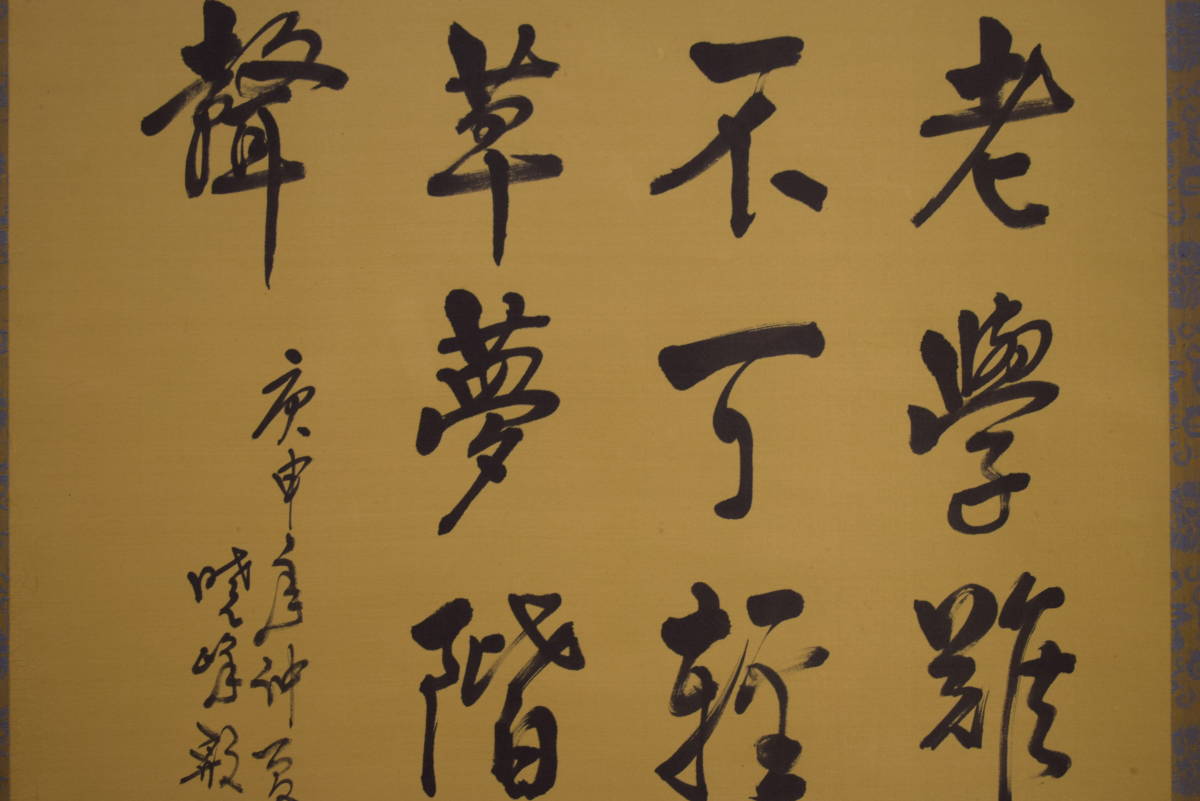 老學難
不可輕
草夢階
聲
庚申年仲夏
曉峰